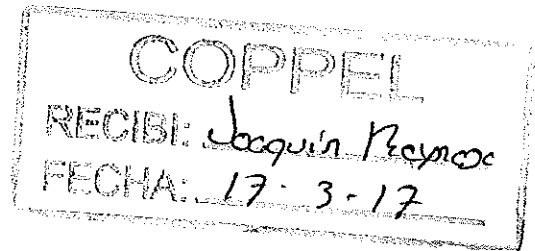 COPPEL
RECIBI: Joaquín
FECHA: 17 - 3 - 17